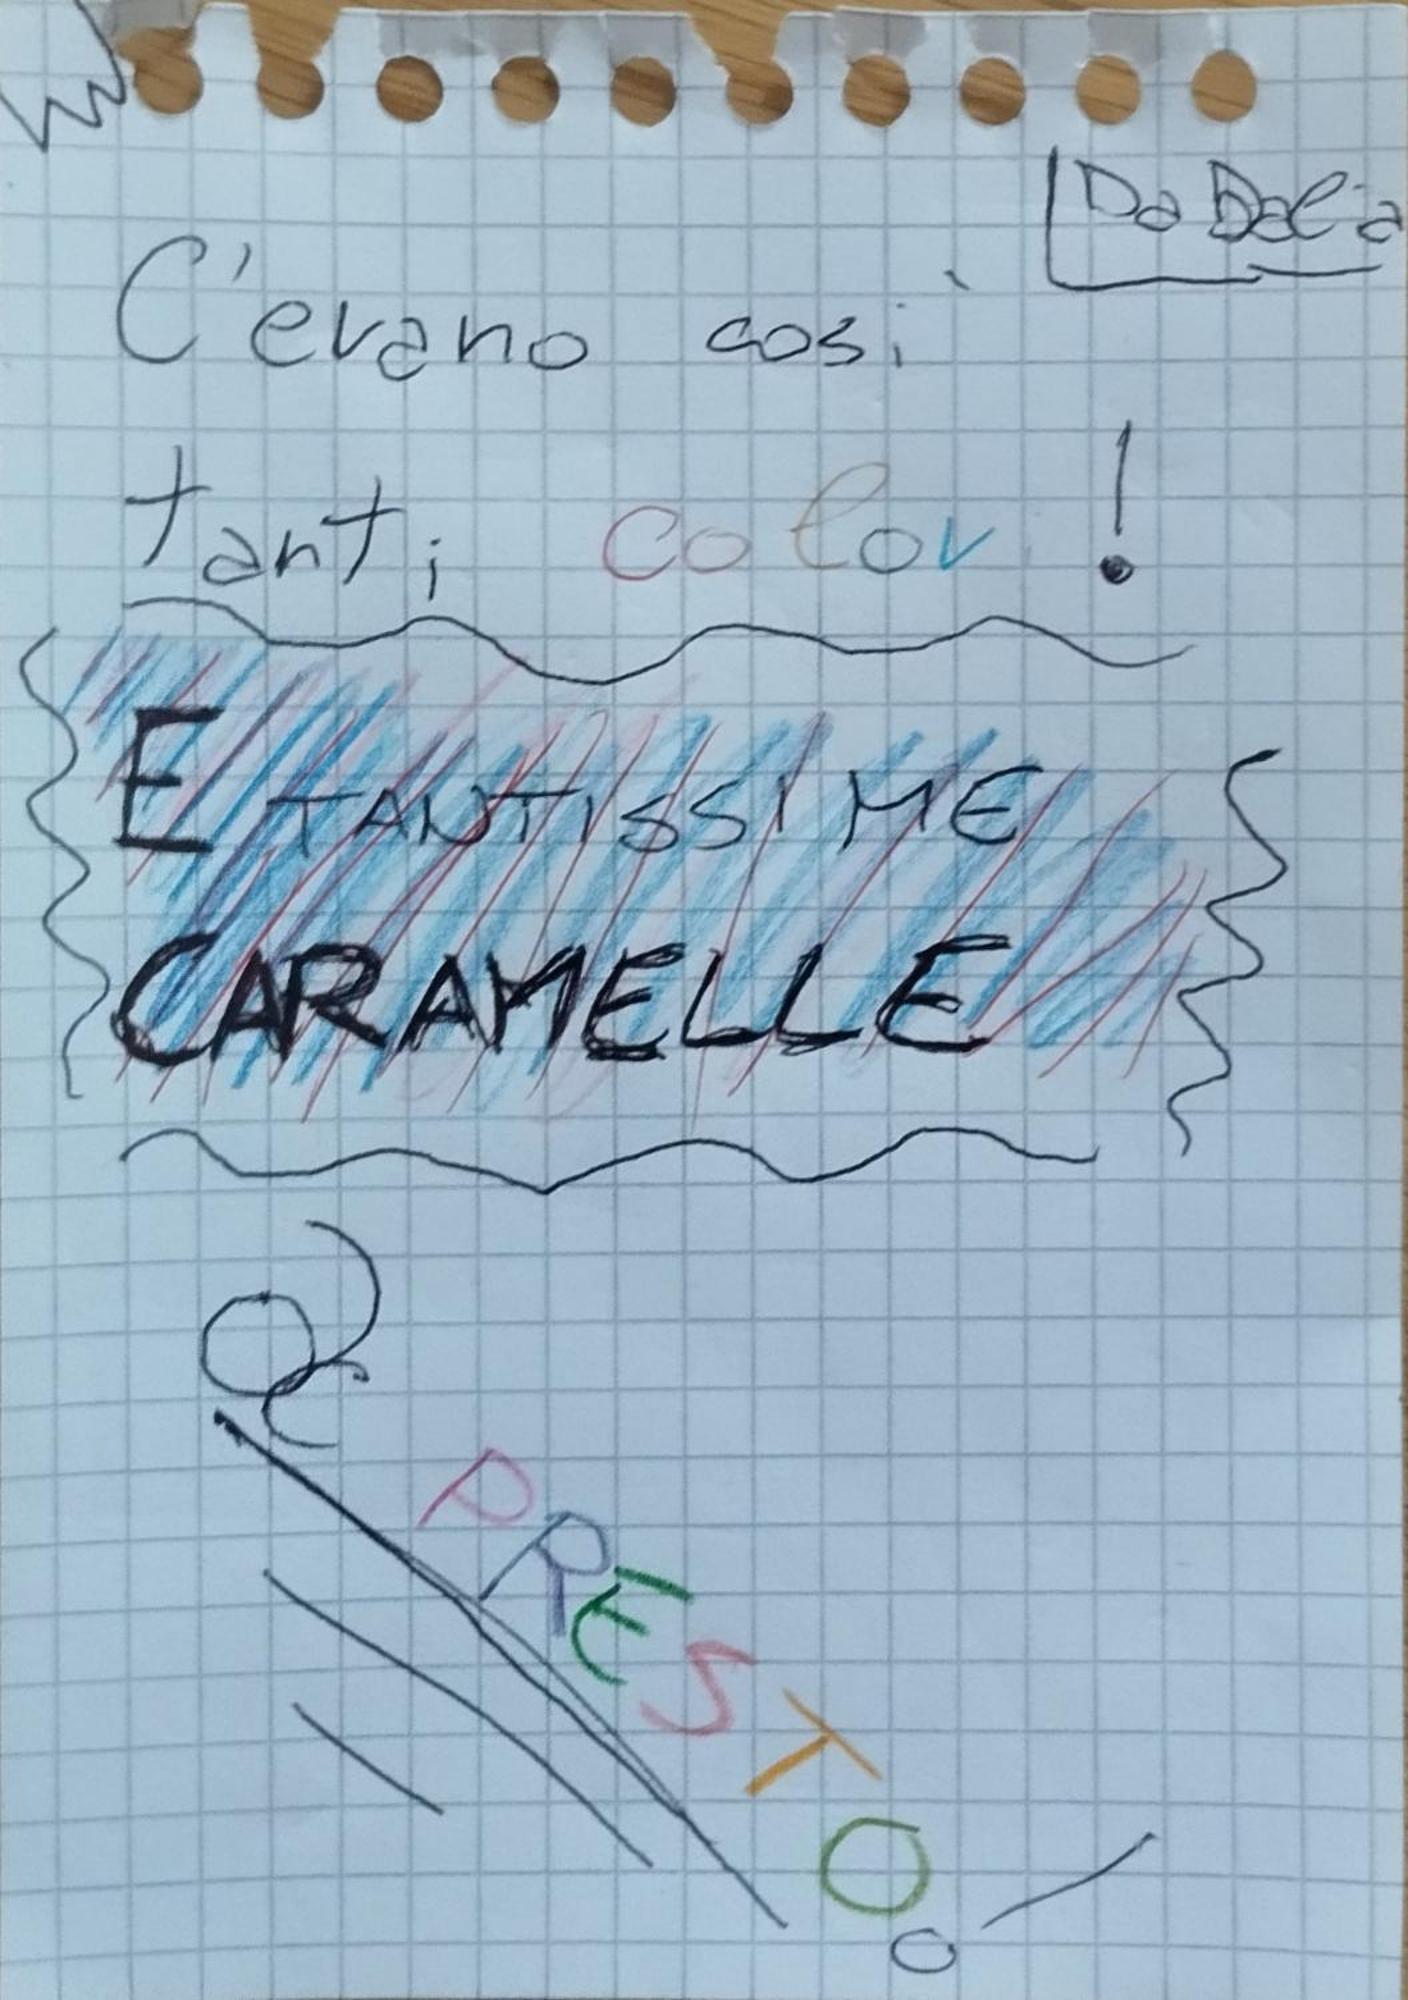 Da Dalia
C'erano così
tanti color !
E TANTISSIME
CARAMELLE
A PRESTO